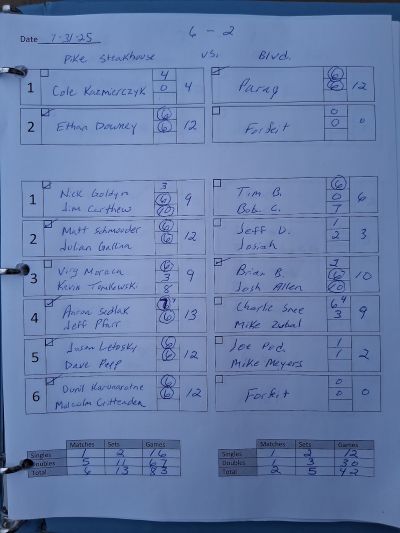 6 - 2
Date 7-31-25
Pike Steakhouse vs. Blvd.
1 Cole Kazmierczyk 4 0 4 Parag 6 6 12
2 Ethan Downey 6 6 12 Forfeit 0 0 0
1 Nick Goldyn Jim Carthew 3 6 10 9 Tim B. Bob C. 6 0 7 6
2 Matt Schmouder Julian Gallina 6 6 12 Jeff D. Josiah 1 2 3
3 Virg Kevin 6 3 8 9 Brian B. Josh Allen 6 10 10
4 Aaron Sedlak Jeff Pfarr 7 6 13 Charlie Snee Mike 6 4 3 9
5 Jason Letosky Dave Pepp 6 6 12 Joe Pod. Mike Meyers 1 1 2
6 Karunaratne Malcolm Crittenden 6 6 12 Forfeit 0 0 0
Matches Sets Games Matches Sets Games
Singles 1 2 16 Singles 1 2 12
Doubles 5 11 67 Doubles 1 3 30
Total 6 13 83 Total 2 5 42